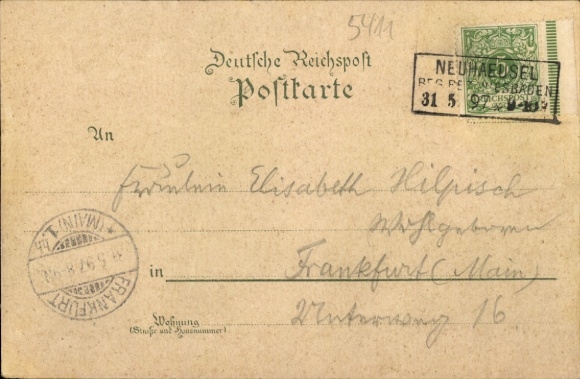 5411
Deutsche Reichspost
Postkarte
NEUHAEUSEL
REG. BEZ. WIESBADEN
31 5 97
REICHSPOST
An
Fräulein Elisabeth Hilpisch
Wohlgeboren
in Frankfurt (Main)
Unterweg 16
Wohnung
(Straße und Hausnummer)
FRANKFURT
(MAIN) 1.
5.97.8-9N.